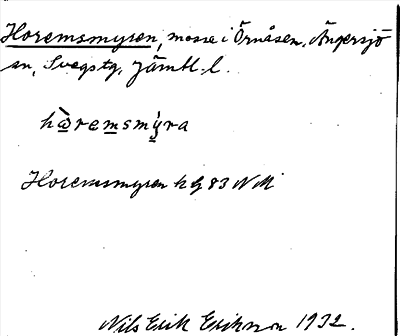 Horemsmyren, mosse i Örnåsen, Ängersjö
sn, Svegs tg, Jämtl. l.
hòremsmýra
Horemsmyren kg 83 NM
Nils Erik Eriksson 1932.